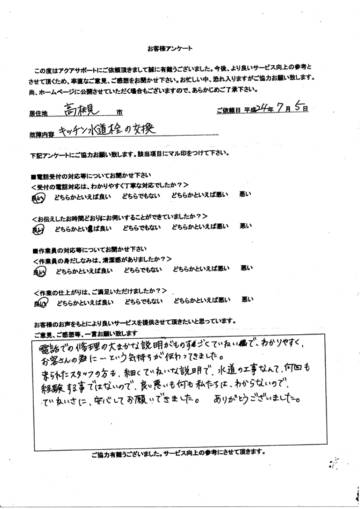 お客様アンケート
この度はアクアサポートにご依頼頂きまして誠に有難うございました。今後、より良いサービス向上の参考と
させて頂くため、率直なご意見、ご感想をお聞かせ下さい。お忙しい中、恐れ入りますがご協力お願い致します。
尚、ホームページに公開させていただく場合もございますので、あらかじめご了承下さい。
居住地 高槻 市 ご依頼日 平成24年7月5日
故障内容 キッチン水道栓の交換
下記アンケートにご協力お願い致します。該当項目にマル印をつけて下さい。
■電話受付の対応等についてお聞かせ下さい
<受付の電話対応は、わかりやすく丁寧な対応でしたか?>
良い どちらかといえば良い どちらでもない どちらかといえば悪い 悪い
<お伝えしたお時間どおりにお伺いすることができていましたか?>
良い どちらかといえば良い どちらでもない どちらかといえば悪い 悪い
■作業員の対応等についてお聞かせ下さい
<作業員の身だしなみは、清潔感がありましたか?>
良い どちらかといえば良い どちらでもない どちらかといえば悪い 悪い
<作業の仕上がりは、ご満足いただけましたか?>
良い どちらかといえば良い どちらでもない どちらかといえば悪い 悪い
お客様のお声をもとにより良いサービスを提供させて頂きたいと思っています。
ご意見、ご感想等、一言お願い致します
電話での修理の大まかな説明がものすごくていねいで、わかりやすく、
お客さんの為にーという気持ちが伝わってきました。
来られたスタッフの方も、細くていねいな説明で、水道の工事なんて、何回も
経験する事ではないので、良い悪いも何も私たちは、わからないので、
ていねいさに、安心してお願いできました。 ありがとうございました。
ご協力有難うございました。サービス向上の参考にさせて頂きます。